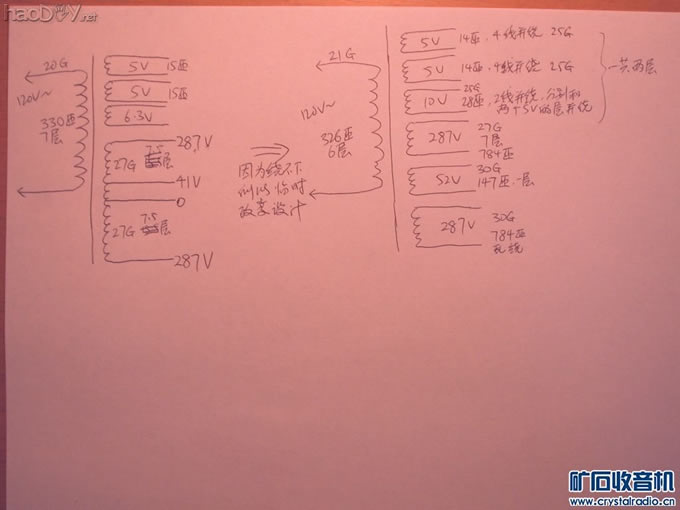 haoDIY.net
20G
120V~
330匝
7层
5V 15匝
5V 15匝
6.3V
287V
27G 7.5层
41V
0
27G 7.5层
287V
因为绕不下
所以临时
改变设计
21G
120V~
326匝
6层
5V 14匝,4线并绕 25G
5V 14匝,4线并绕 25G
一共两层
25G
10V 28匝,2线并绕,分别和
两个5V的层并绕
287V 27G
7层
784匝
30G
52V 147匝一层
287V 30G
784匝
乱绕
矿石收音机
www.crystalradio.cn